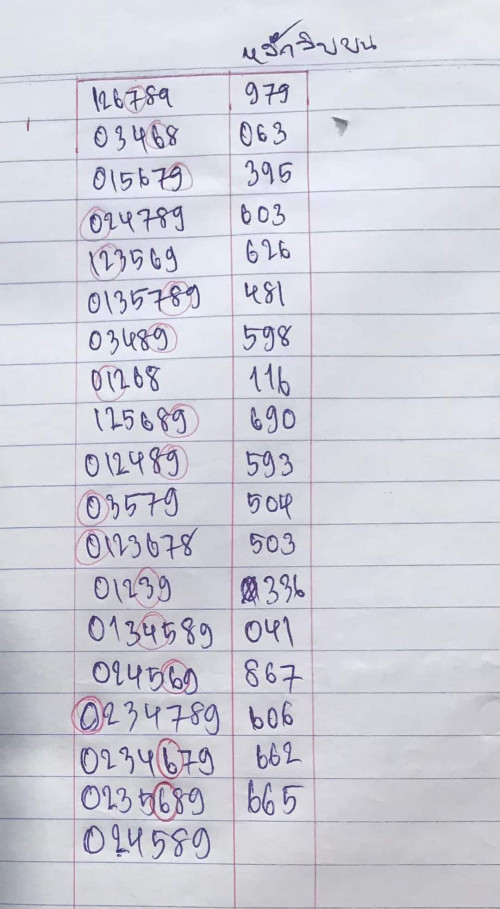 หลักสิบบน
126789 979
03468 063
015679 395
024789 603
123569 626
0135789 481
03489 598
01268 116
125689 690
012489 593
03579 504
0123678 503
01239 336
0134589 041
024569 867
0234789 606
0234679 662
0235689 665
024589